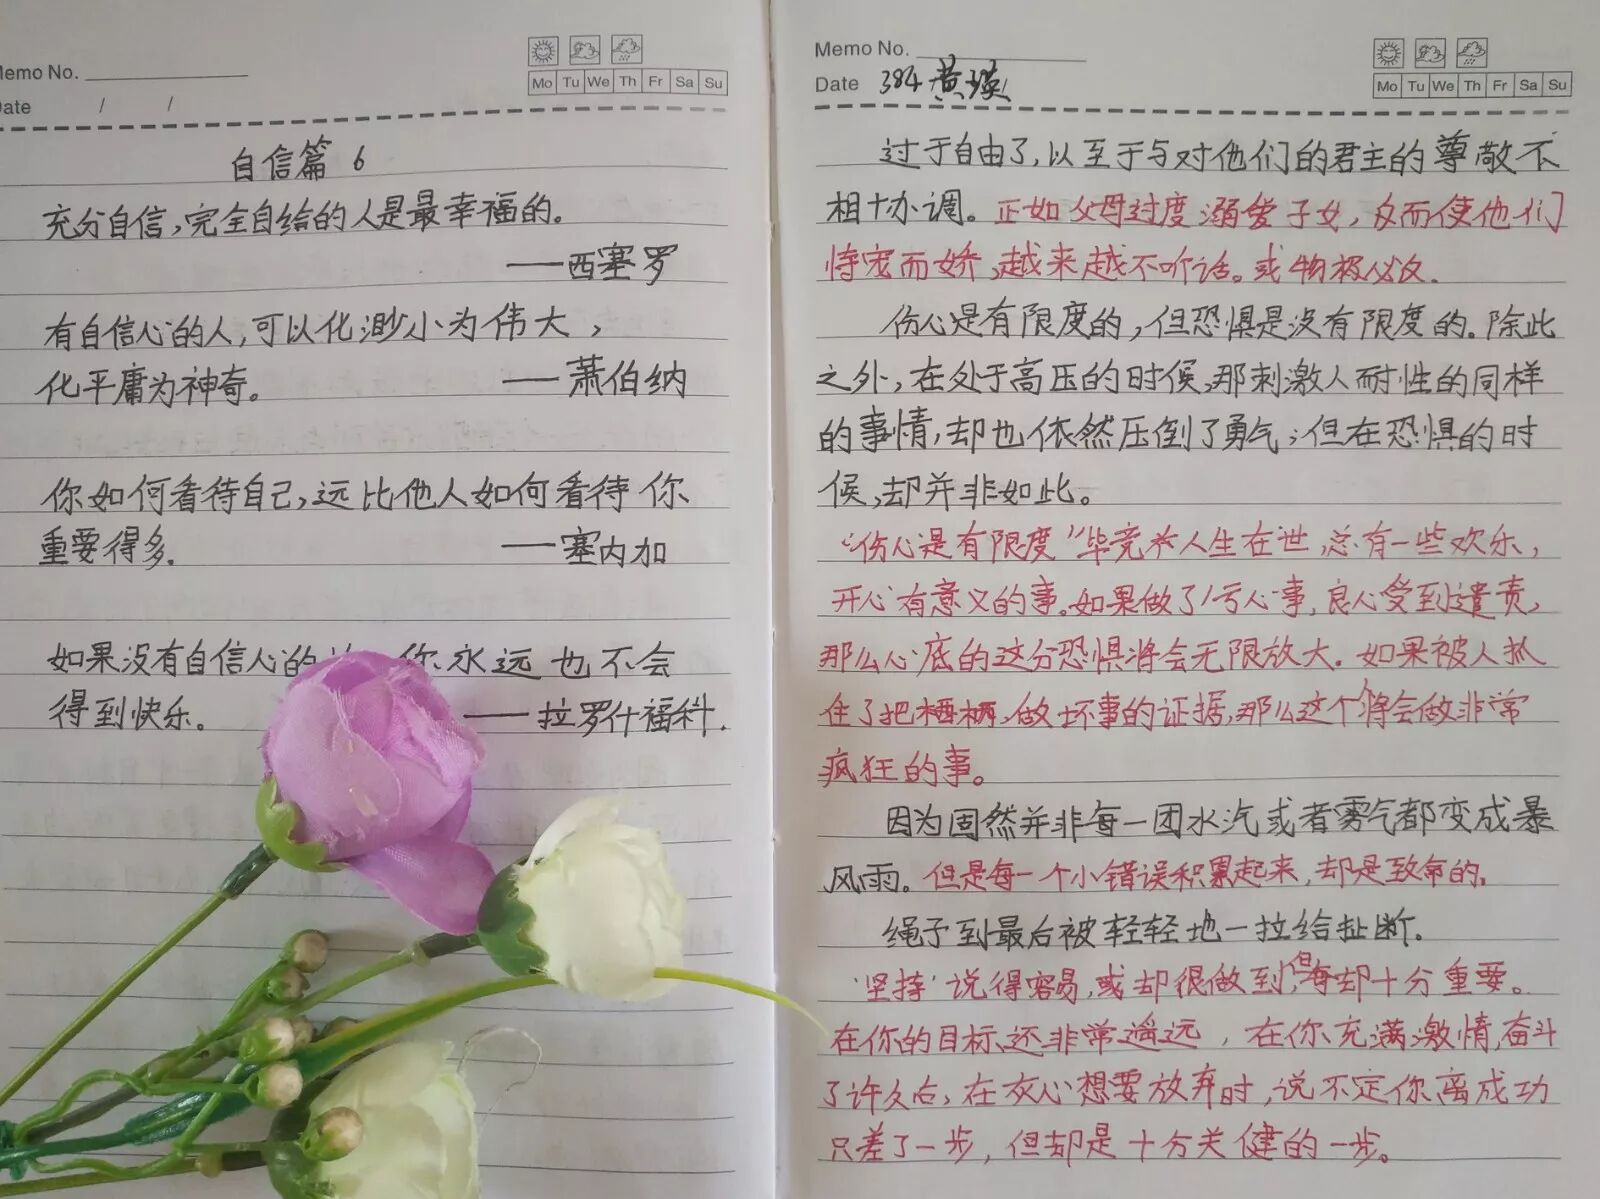 Memo No.
Date / /
Mo Tu We Th Fr Sa Su
自信篇 6
充分自信,完全自给的人是最幸福的。
——西塞罗
有自信心的人,可以化渺小为伟大,
化平庸为神奇。 ——萧伯纳
你如何看待自己,远比他人如何看待你
重要得多. ——塞内加
如果没有自信心的 你永远也不会
得到快乐。 ——拉罗什福科.
Memo No.
Date 384黄瑛
Mo Tu We Th Fr Sa Su
过于自由了,以至于与对他们的君主的尊敬不
相协调。正如父母过度溺爱子女,反而使他们
恃宠而娇,越来越不听话。或物极必反.
伤心是有限度的,但恐惧是没有限度的.除此
之外,在处于高压的时候,那刺激人耐性的同样
的事情,却也依然压倒了勇气;但在恐惧的时
候,却并非如此。
“伤心是有限度”毕竟人生在世,总有一些欢乐,
开心有意义的事.如果做了亏心事,良心受到谴责,
那么心底的这分恐惧将会无限放大.如果被人抓
住了把柄,做坏事的证据,那么这个人将会做非常
疯狂的事。
因为固然并非每一团水汽或者雾气都变成暴
风雨。但是每一个小错误积累起来,却是致命的.
绳子到最后被轻轻地一拉给扯断.
‘坚持’说得容易,或却很做到,但却十分重要。
在你的目标还非常遥远,在你充满激情,奋斗
了许久后,在灰心想要放弃时,说不定你离成功
只差了一步,但却是十分关健的一步。